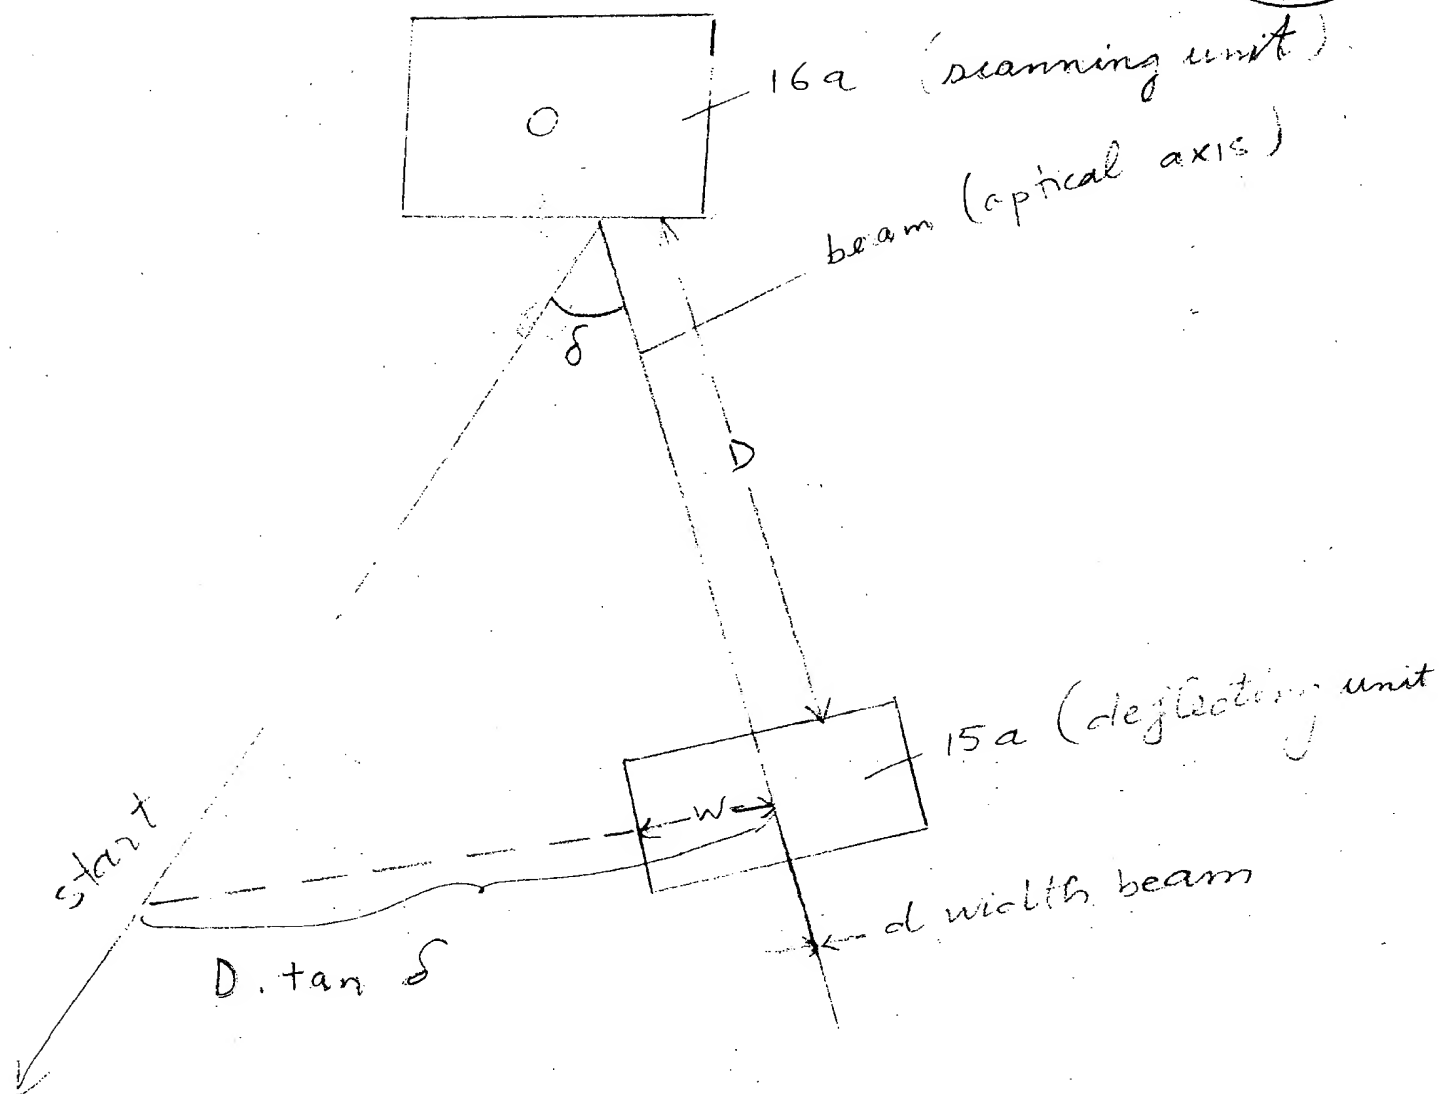 16a (scanning unit)
beam (optical axis)
δ
D
15a (deflecting unit
W
start
d width beam
D. tan δ